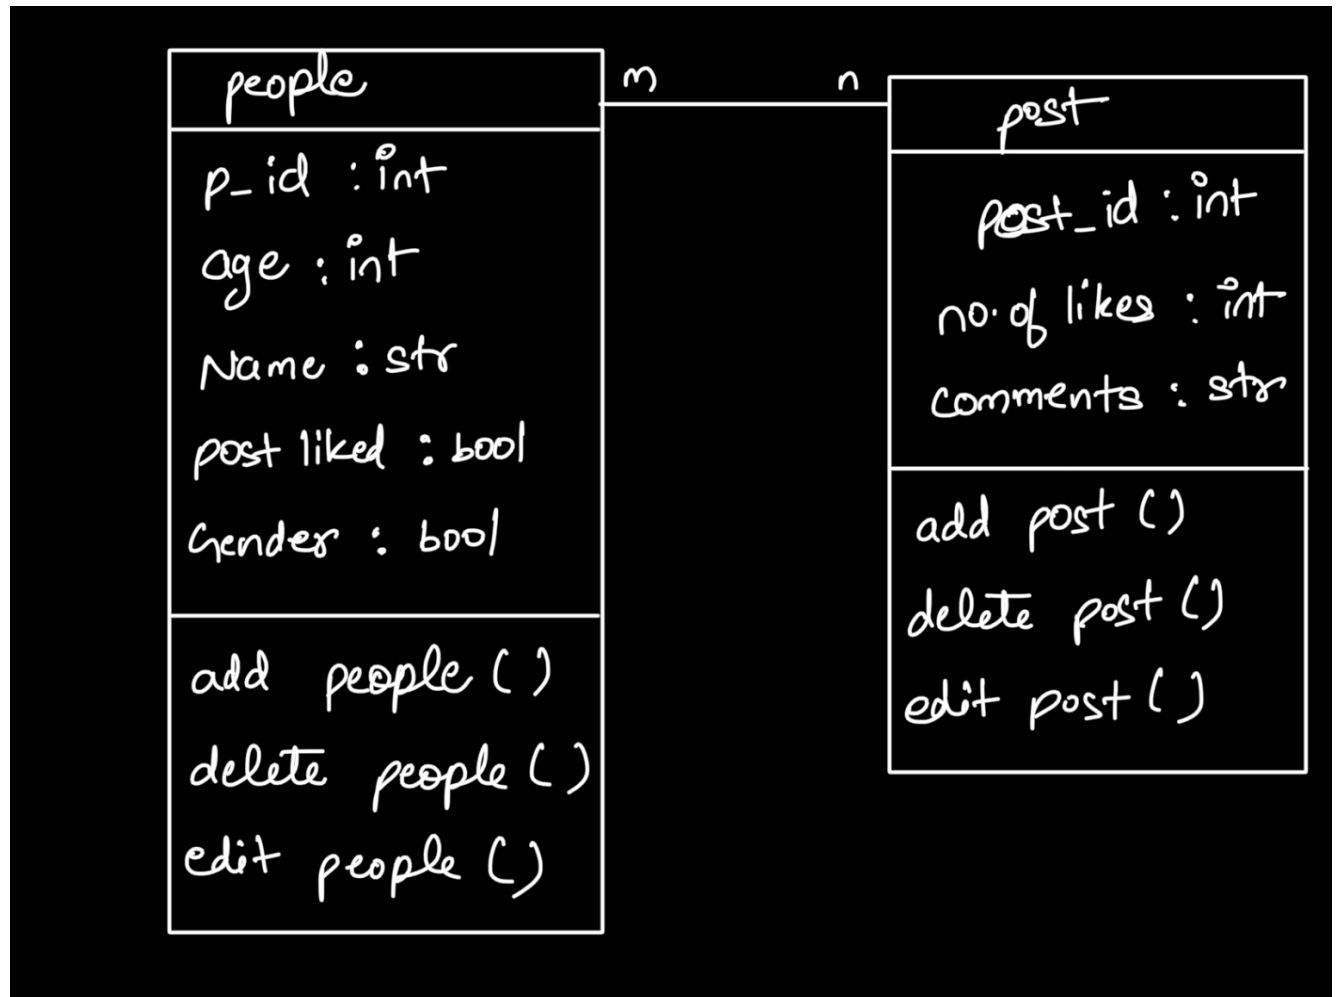 people
p_id : int
age : int
Name : str
post liked : bool
Gender : bool
add people ( )
delete people ( )
edit people ( )
m
n
post
post_id : int
no. of likes : int
comments : str
add post ( )
delete post ( )
edit post ( )